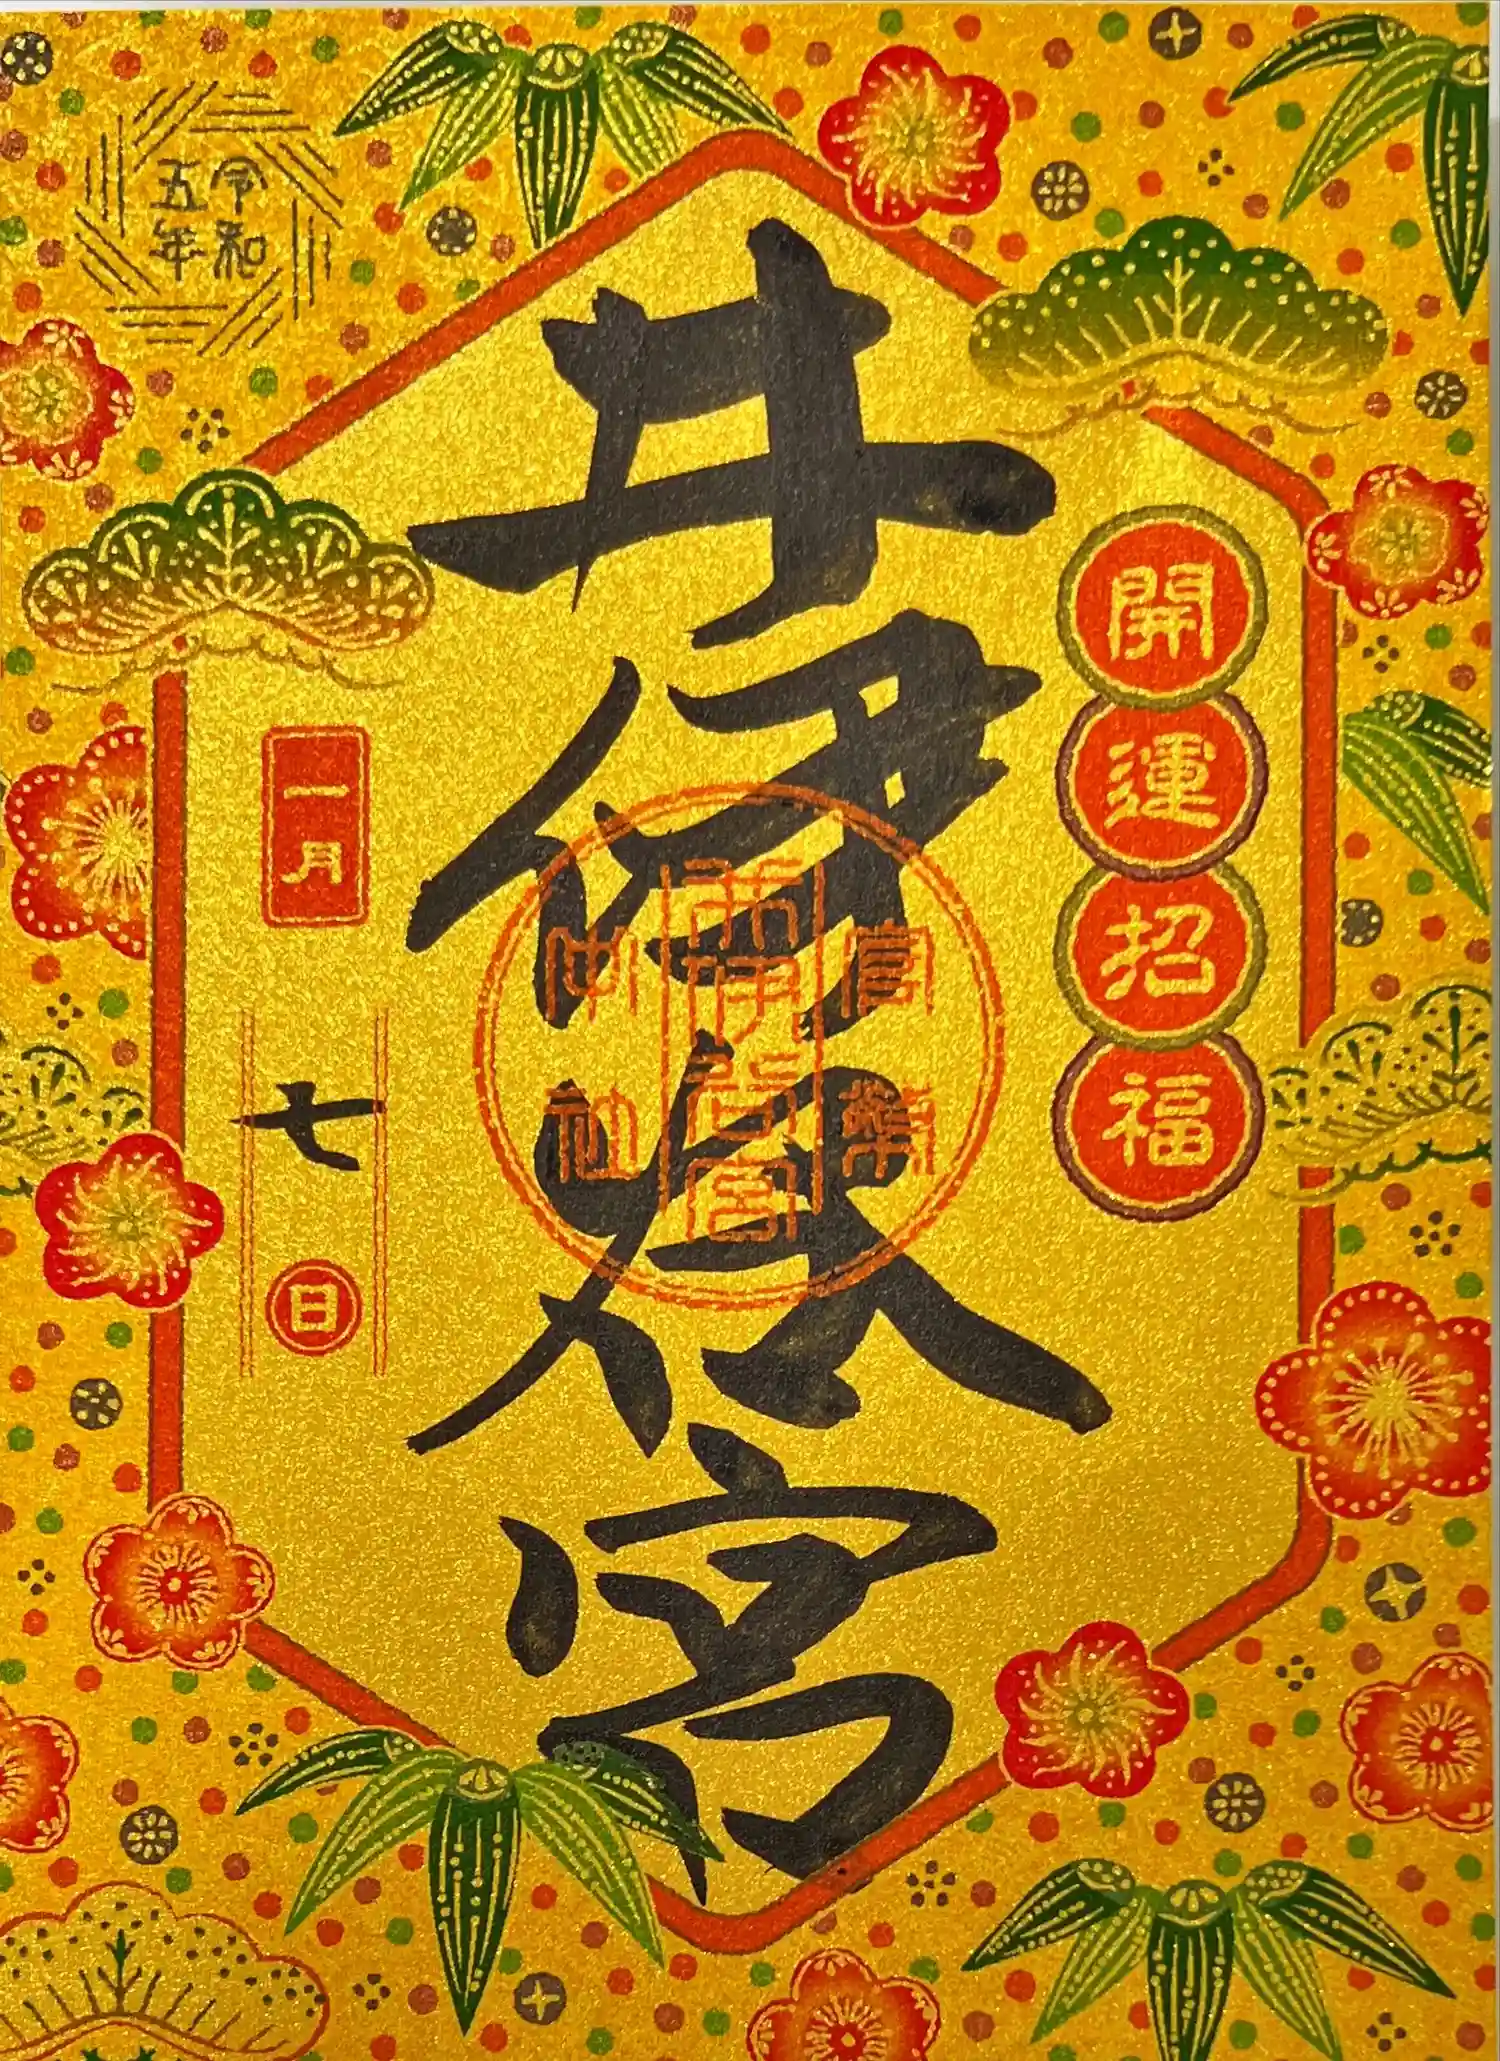 開運招福
井伊谷宮
官幣
井伊谷宮
中社
令和
五年
一月
七日